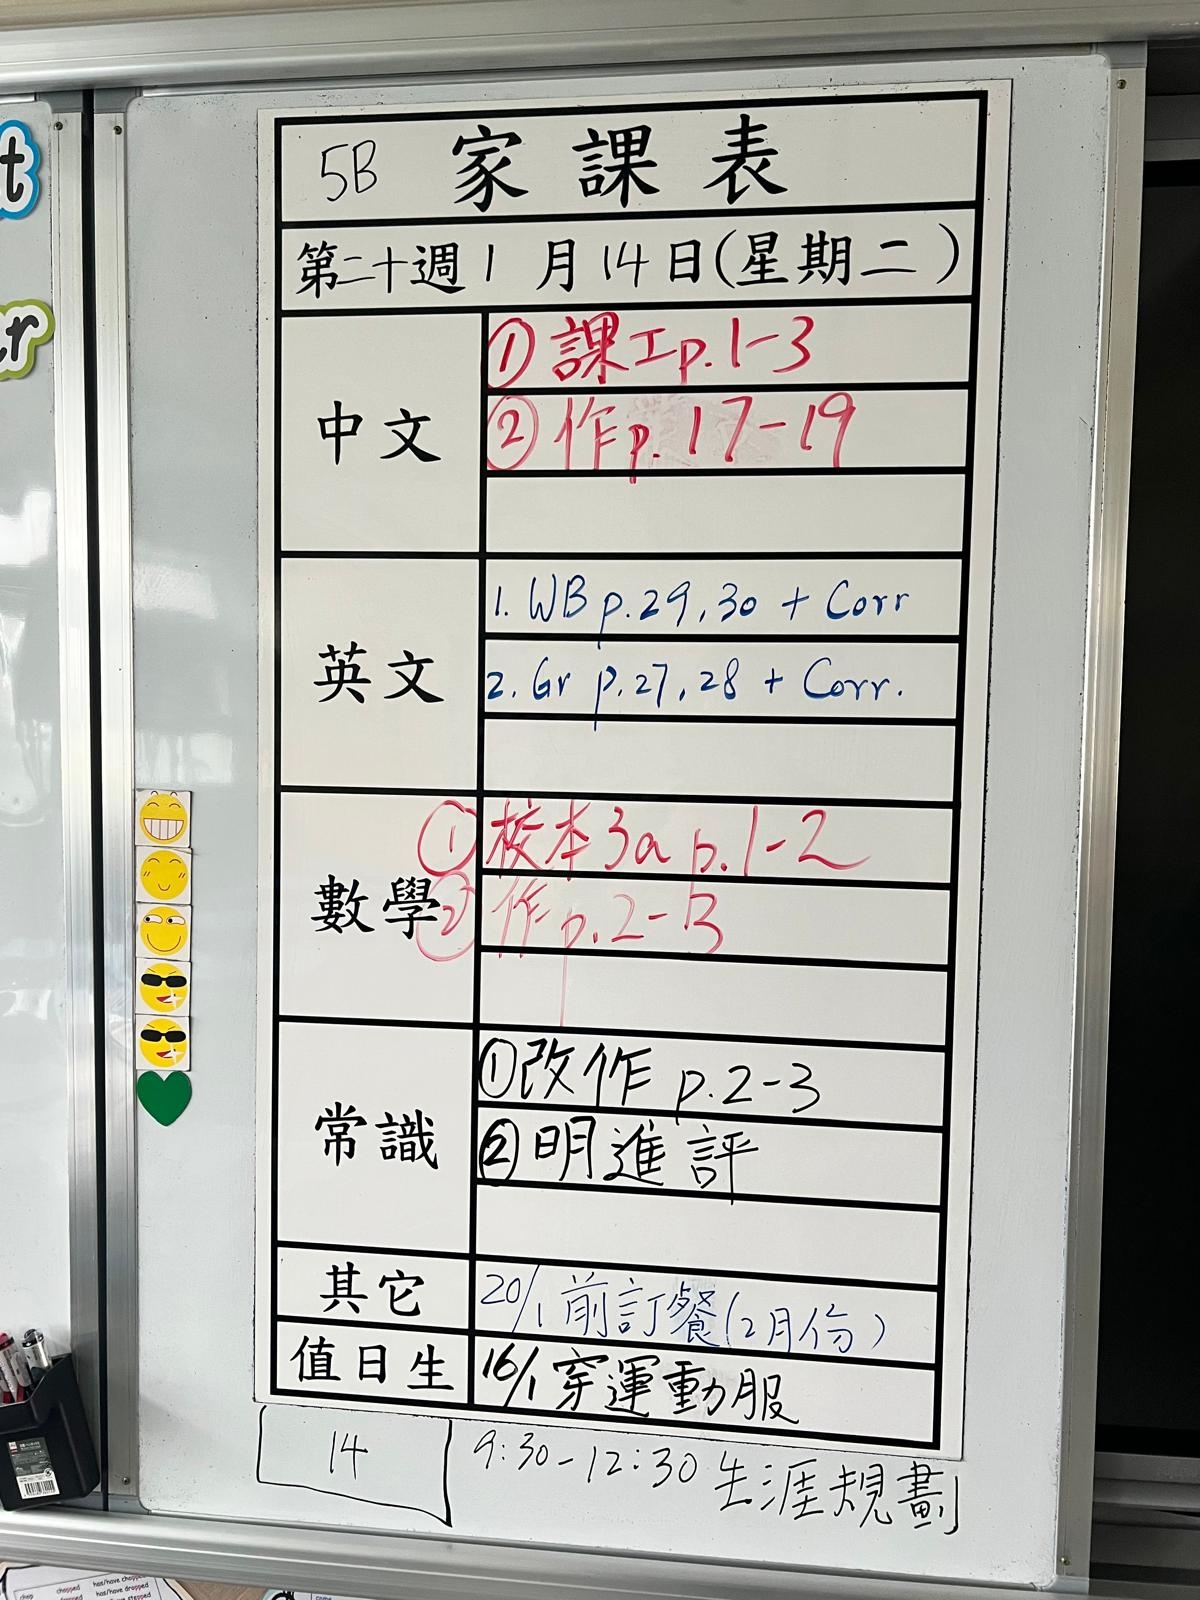 t
r
5B 家課表
第二十週1月14日(星期二)
中文
①課工p.1-3
②作p.17-19
英文
1. WB p.29,30 + Corr
2. Gr p.27,28 + Corr.
數學
①校本3a p.1-2
②作p.2-3
常識
①改作 p.2-3
②明進評
其它
20/1前訂餐(2月份)
值日生
16/1穿運動服
14
9:30-12:30 生涯規劃
chop chopped has/have chopped
dropped has/have dropped
has/have stepped
come